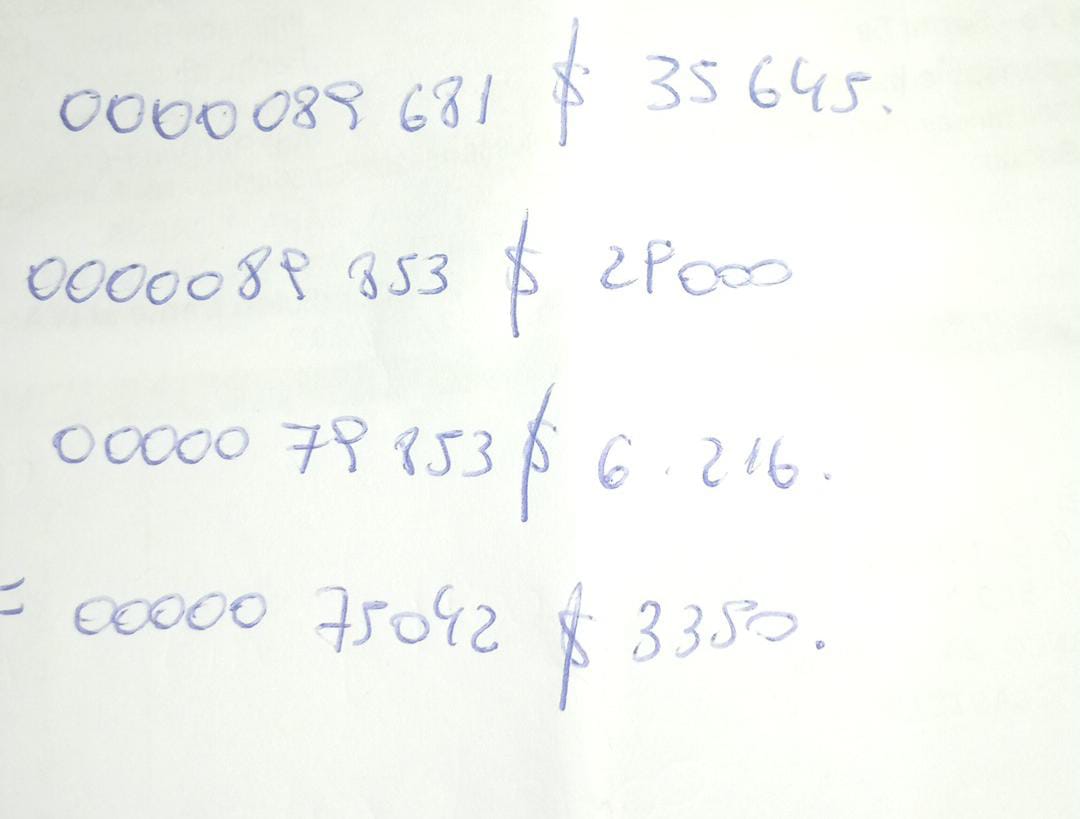 0000089 681 $ 35645.
0000089 853 $ 29000
00000 79 853 $ 6.216.
= 00000 75042 $ 3350.